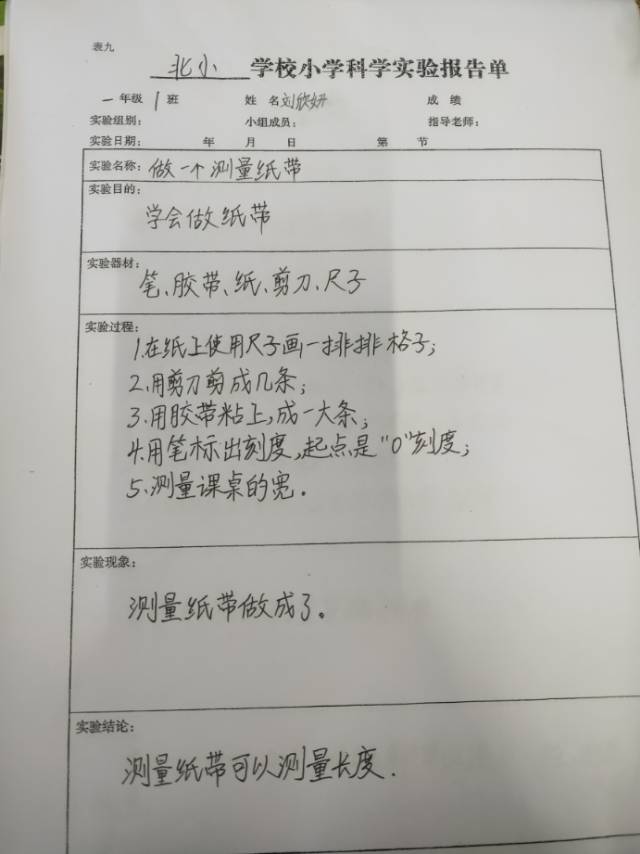 表九
北小 学校小学科学实验报告单
一年级 1班 姓名 刘欣妍 成绩
实验组别： 小组成员： 指导老师：
实验日期： 年 月 日 第 节
实验名称：做一个测量纸带
实验目的：
学会做纸带
实验器材：
笔、胶带、纸、剪刀、尺子
实验过程：
1.在纸上使用尺子画一排排格子；
2.用剪刀剪成几条；
3.用胶带粘上，成一大条；
4.用笔标出刻度，起点是“0”刻度；
5.测量课桌的宽．
实验现象：
测量纸带做成了。
实验结论：
测量纸带可以测量长度．